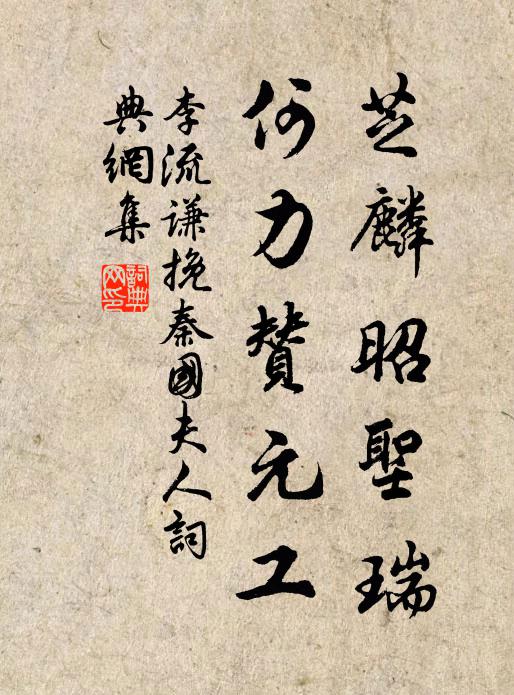 芝麟昭聖瑞
何力贊元工
李流謙挽秦國夫人詞
典網集
詞典網印